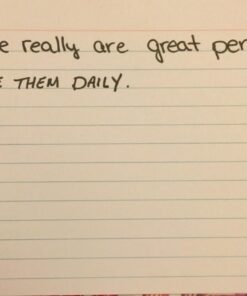 really are great
THEM DAILY.